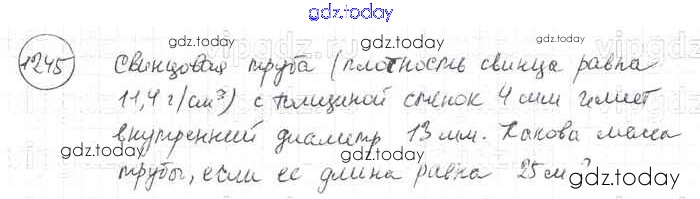 gdz.today
1245 Свинцовая труба (плотность свинца равна
gdz.today gdz.today
11,4 г/см³) с толщиной стенок 4 мм имеет
внутренний диаметр 13 мм. Какова масса
gdz.today gdz.today
трубы, если ее длина равна 25 м?
gdz.today